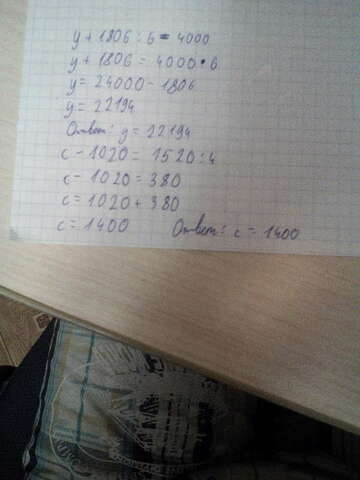 y + 1806 : 6 = 4000
y + 1806 = 4000 • 6
y = 24000 - 1806
y = 22194
Ответ: y = 22194
c - 1020 = 1520 : 4
c - 1020 = 380
c = 1020 + 380
c = 1400 Ответ: c = 1400